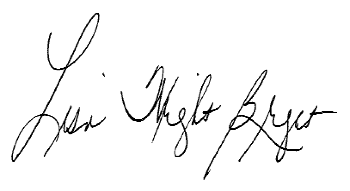 Lisa Wright Bryant